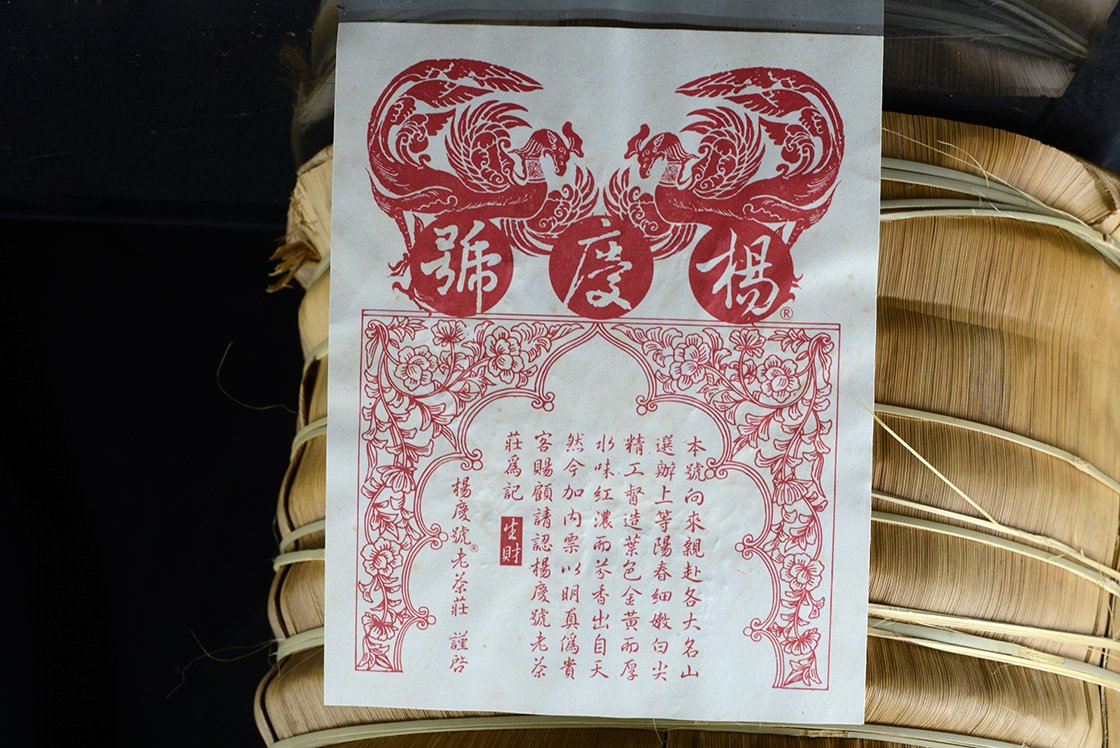 楊慶號®
本號向來親赴各大名山
選辦上等陽春細嫩白尖
精工督造葉色金黃而厚
水味紅濃而芬香出自天
然今加內票以明真偽貴
客賜顧請認楊慶號老茶
莊為記
生財
楊慶號®老茶莊 謹啓